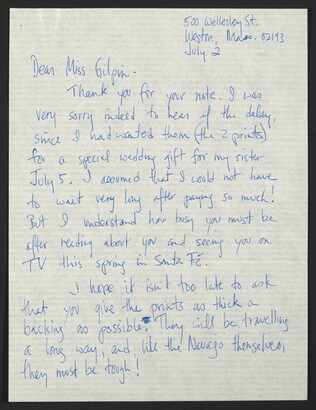 500 Wellesley St.
Weston, Mass. 02193
July 2
Dear Miss Gilpin -
Thank you for your note. I was
very sorry indeed to hear of the delay,
since I had wanted them (the 2 prints)
for a special wedding gift for my sister
July 5. I assumed that I would not have
to wait very long after paying so much!
But I understand how busy you must be
after reading about you and seeing you on
TV this spring in Santa Fé.
I hope it isn't too late to ask
that you give the prints as thick a
backing as possible. They will be travelling
a long way, and like the Navajo themselves,
they must be tough!